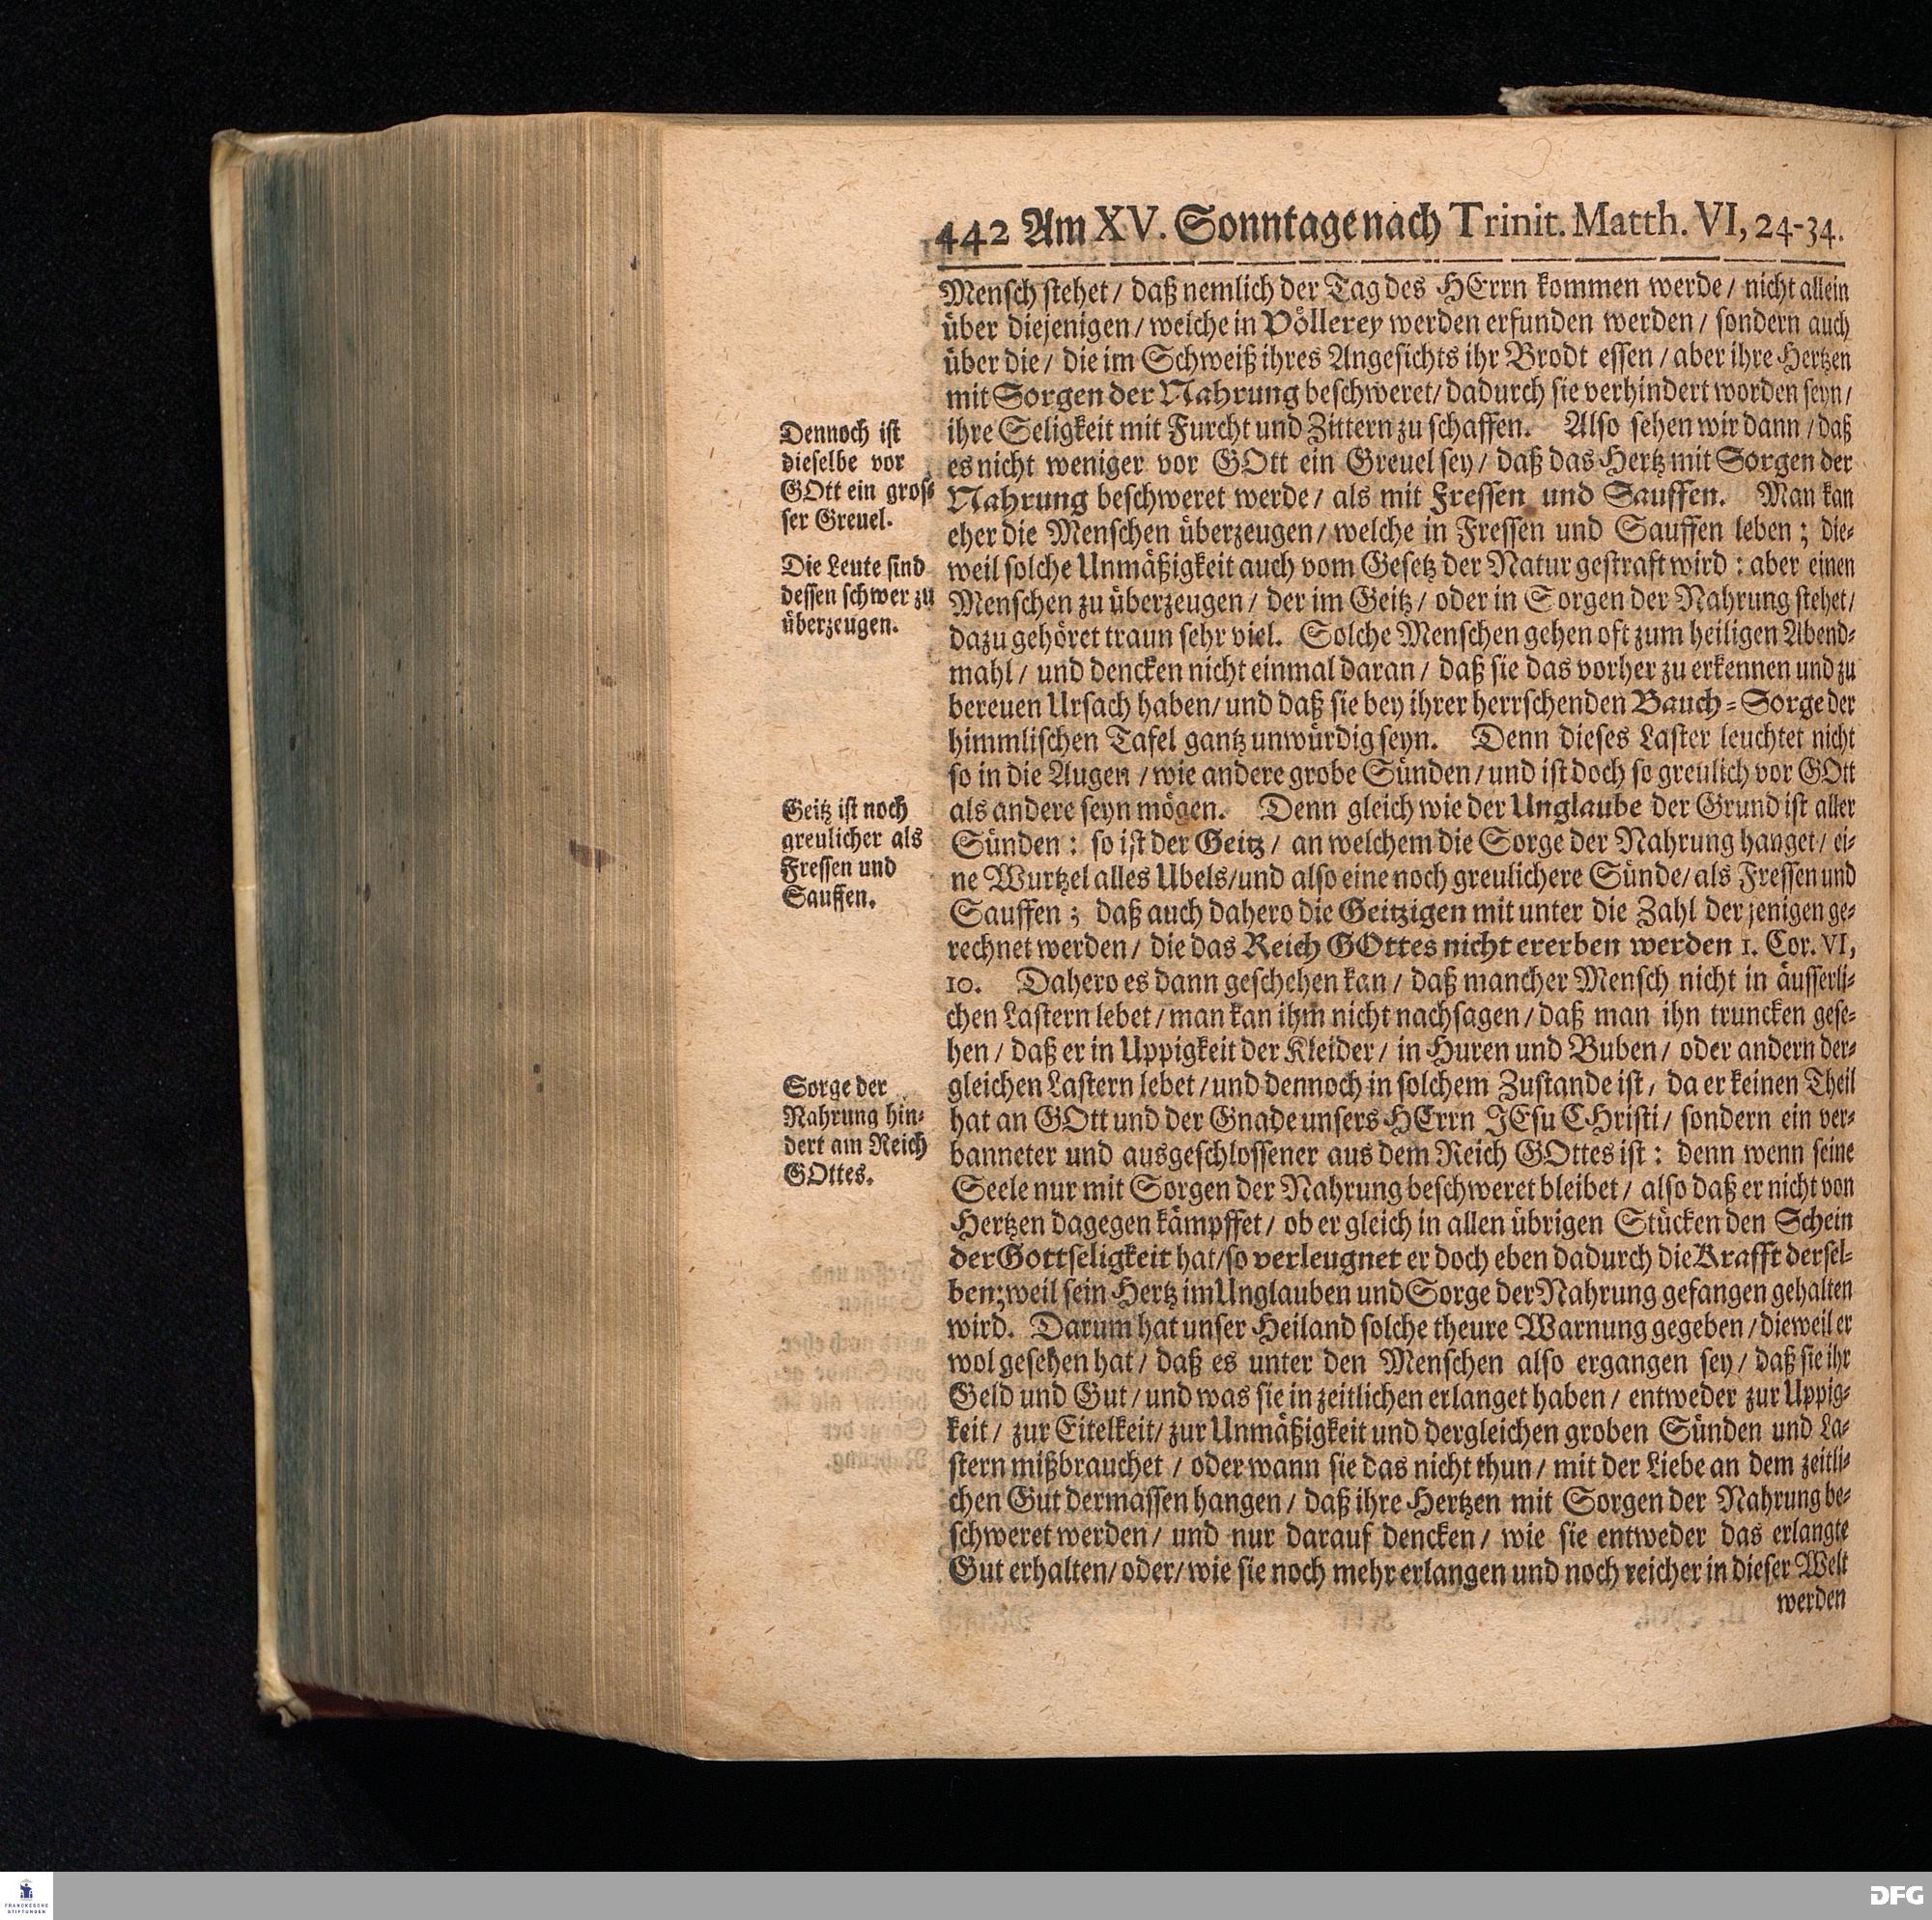 442 Am XV. Sonntage nach Trinit. Matth. VI, 24-34.
Mensch stehet / daß nemlich der Tag des HErrn kommen werde / nicht allein
über diejenigen / welche in Völlerey werden erfunden werden / sondern auch
über die / die im Schweiß ihres Angesichts ihr Brodt essen / aber ihre Hertzen
mit Sorgen der Nahrung beschweret / dadurch sie verhindert worden seyn /
ihre Seligkeit mit Furcht und Zittern zu schaffen. Also sehen wir dann / daß
es nicht weniger vor GOtt ein Greuel sey / daß das Hertz mit Sorgen der
Nahrung beschweret werde / als mit Fressen und Sauffen. Man kan
eher die Menschen überzeugen / welche in Fressen und Sauffen leben ; die-
weil solche Unmäßigkeit auch vom Gesetz der Natur gestraft wird : aber einen
Menschen zu überzeugen / der im Geitz / oder in Sorgen der Nahrung stehet /
dazu gehöret traun sehr viel. Solche Menschen gehen oft zum heiligen Abend-
mahl / und dencken nicht einmal daran / daß sie das vorher zu erkennen und zu
bereuen Ursach haben / und daß sie bey ihrer herrschenden Bauch-Sorge der
himmlischen Tafel gantz unwürdig seyn. Denn dieses Laster leuchtet nicht
so in die Augen / wie andere grobe Sünden / und ist doch so greulich vor GOtt
als andere seyn mögen. Denn gleich wie der Unglaube der Grund ist aller
Sünden : so ist der Geitz / an welchem die Sorge der Nahrung hanget / ei-
ne Wurtzel alles Ubels / und also eine noch greulichere Sünde / als Fressen und
Sauffen ; daß auch dahero die Geitzigen mit unter die Zahl der jenigen ge-
rechnet werden / die das Reich GOttes nicht ererben werden 1. Cor. VI,
10. Dahero es dann geschehen kan / daß mancher Mensch nicht in äusserli-
chen Lastern lebet / man kan ihm nicht nachsagen / daß man ihn truncken gese-
hen / daß er in Uppigkeit der Kleider / in Huren und Buben / oder andern der-
gleichen Lastern lebet / und dennoch in solchem Zustande ist / da er keinen Theil
hat an GOtt und der Gnade unsers HErrn JEsu CHristi / sondern ein ver-
banneter und ausgeschlossener aus dem Reich GOttes ist : denn wenn seine
Seele nur mit Sorgen der Nahrung beschweret bleibet / also daß er nicht von
Hertzen dagegen kämpffet / ob er gleich in allen übrigen Stücken den Schein
der Gottseligkeit hat / so verleugnet er doch eben dadurch die Krafft dersel-
ben; weil sein Hertz im Unglauben und Sorge der Nahrung gefangen gehalten
wird. Darum hat unser Heiland solche theure Warnung gegeben / dieweil er
wol gesehen hat / daß es unter den Menschen also ergangen sey / daß sie ihr
Geld und Gut / und was sie in zeitlichen erlanget haben / entweder zur Uppig-
keit / zur Eitelkeit / zur Unmäßigkeit und dergleichen groben Sünden und La-
stern mißbrauchet / oder wann sie das nicht thun / mit der Liebe an dem zeitli-
chen Gut dermassen hangen / daß ihre Hertzen mit Sorgen der Nahrung be-
schweret werden / und nur darauf dencken / wie sie entweder das erlangte
Gut erhalten / oder / wie sie noch mehr erlangen und noch reicher in dieser Welt
werden
Dennoch ist
dieselbe vor
GOtt ein gros-
ser Greuel.
Die Leute sind
dessen schwer zu
überzeugen.
Geitz ist noch
greulicher als
Fressen und
Sauffen.
Sorge der
Nahrung hin-
dert am Reich
GOttes.
FRANCKESCHE
STIFTUNGEN
DFG